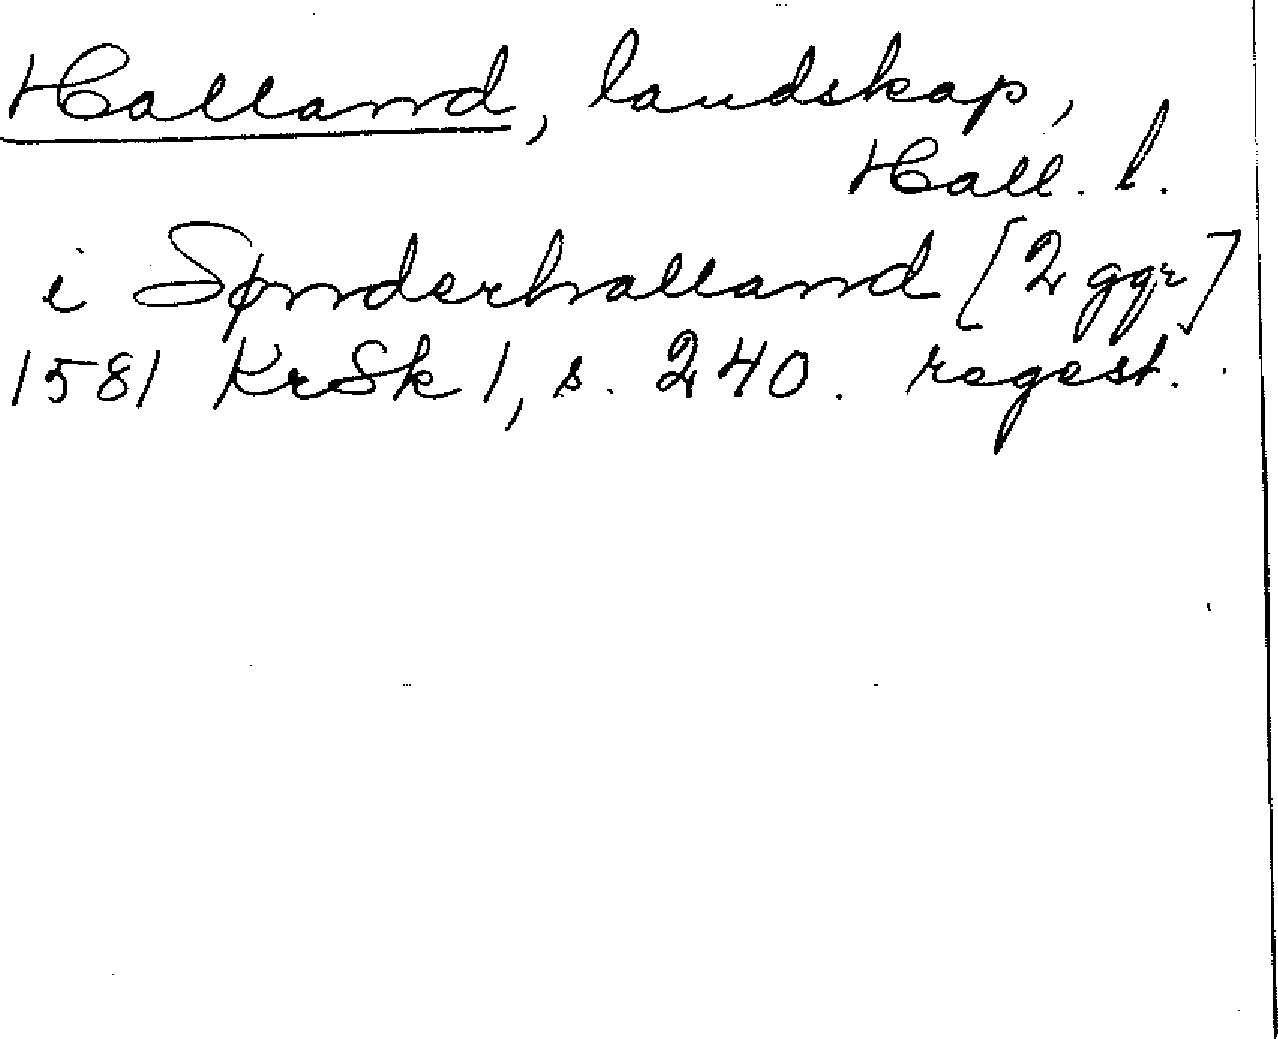 Halland, landskap,
Hall. l.
i Sønderhalland [2 ggr]
1581 KrSk 1, s. 240. regest.